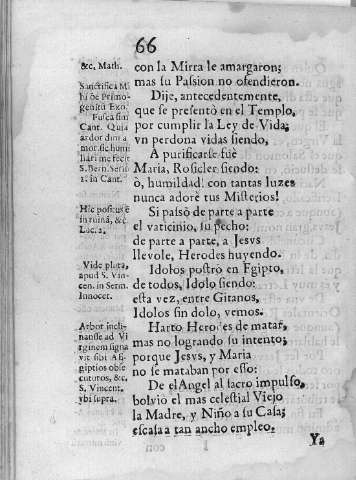 66
&c. Math.
Sanctifica Mi
hi õe Primo-
genitũ Exo.
Fusca sim
Cant. Quia
ardor dim a
mor. sic humi
hàri me fecit
S. Bern. Serm
in Cant.
Hic positus ẽ
in ruinã, &c
Luc. 2.
Vide plura,
apud S. Vin-
cen. in Serm.
Innocet.
Arbor incli-
nansse ad Vi
rginem signa
vit sibi AEgi
giptios obse
cuturos, &c.
S. Vincent.
vbi supra.
con la Mirra le amargaron;
mas su Passion no ofendieron.
Dije, antecedentemente,
que se presentò en el Templo,
por cumplir la Ley de Vida;
vn perdona vidas siendo,
A purificarse fuè
Maria, Rosicler siendo:
ò, humildad! con tantas luzes
nunca adorè tus Misterios!
Si passò de parte a parte
el vaticinio, su pecho:
de parte a parte, a Jesvs
llevole, Herodes huyendo.
Idolos postrò en Egipto,
de todos, Idolo siendo:
esta vez, entre Gitanos,
Idolos sin dolo, vemos.
Harto Herodes de matar,
mas no logrando su intento;
porque Jesvs, y Maria
no se mataban por esso:
De el Angel al sacro impulso,
bolviò el mas celestial Viejo
la Madre, y Niño a su Casa;
escasa a tan ancho empleo.
Ya